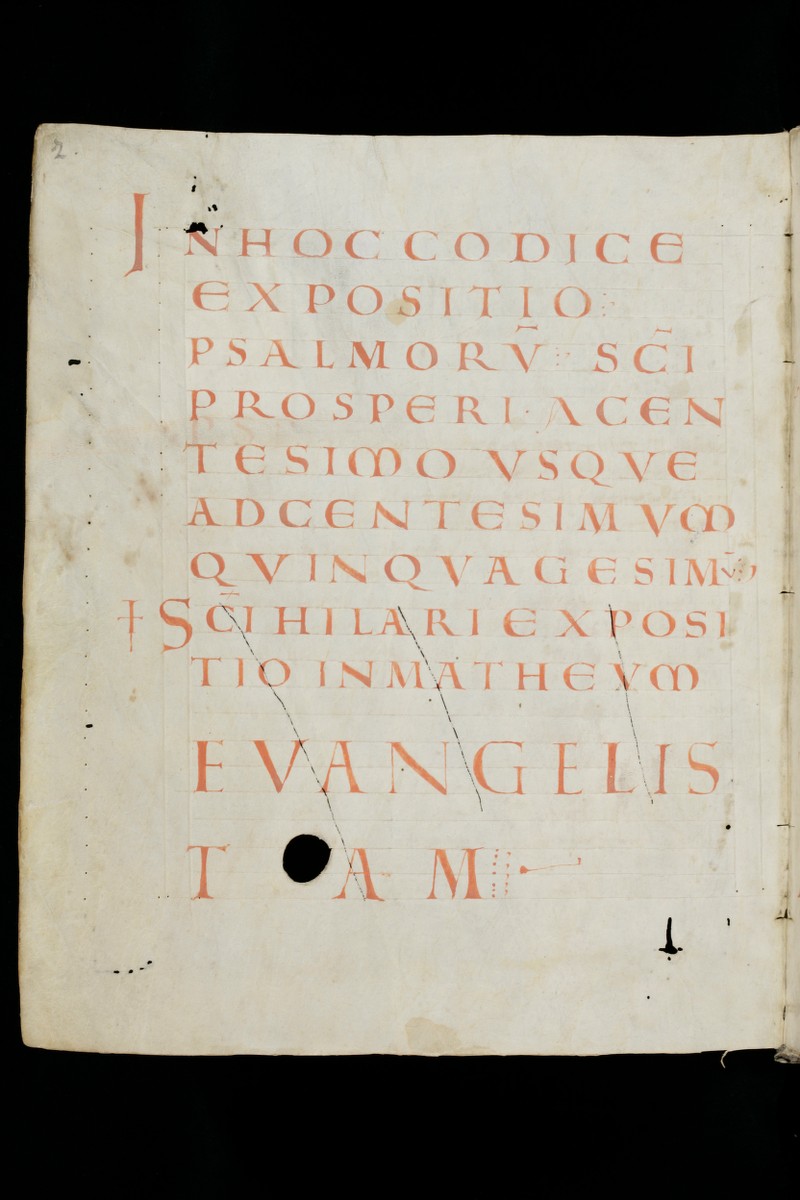 2.
INHOC CODICE
EXPOSITIO
PSALMORV̄ SC̄I
PROSPERI· ACEN
TESIMO VSQVE
ADCENTESIMVM
QVINQVAGESIMV̄
† SC̄I HILARI EXPOSI
TIO INMATHEVM
EVANGELIS
TAM